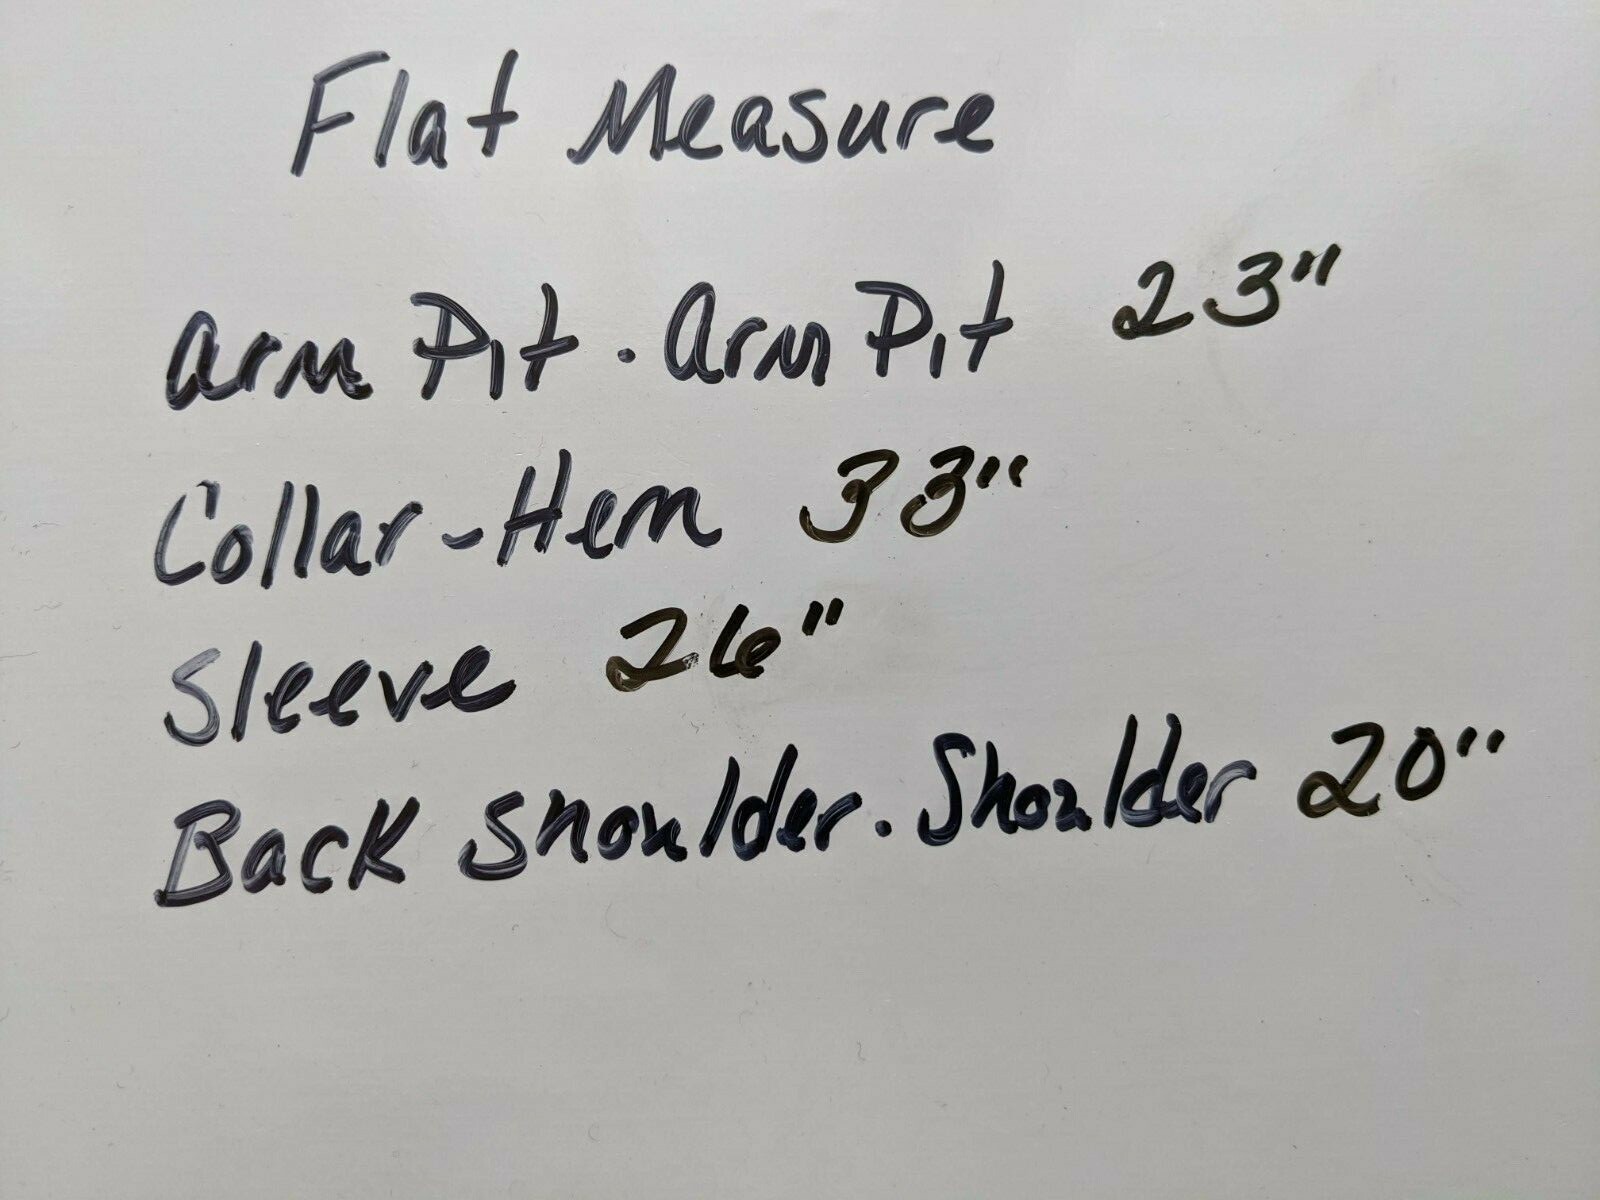 Flat Measure
Arm Pit - Arm Pit 23"
Collar - Hem 33"
Sleeve 26"
Back Shoulder - Shoulder 20"